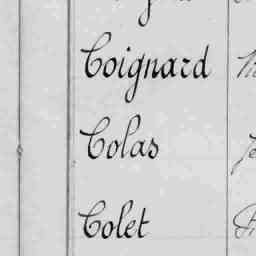 Coignard
Colas
Colet